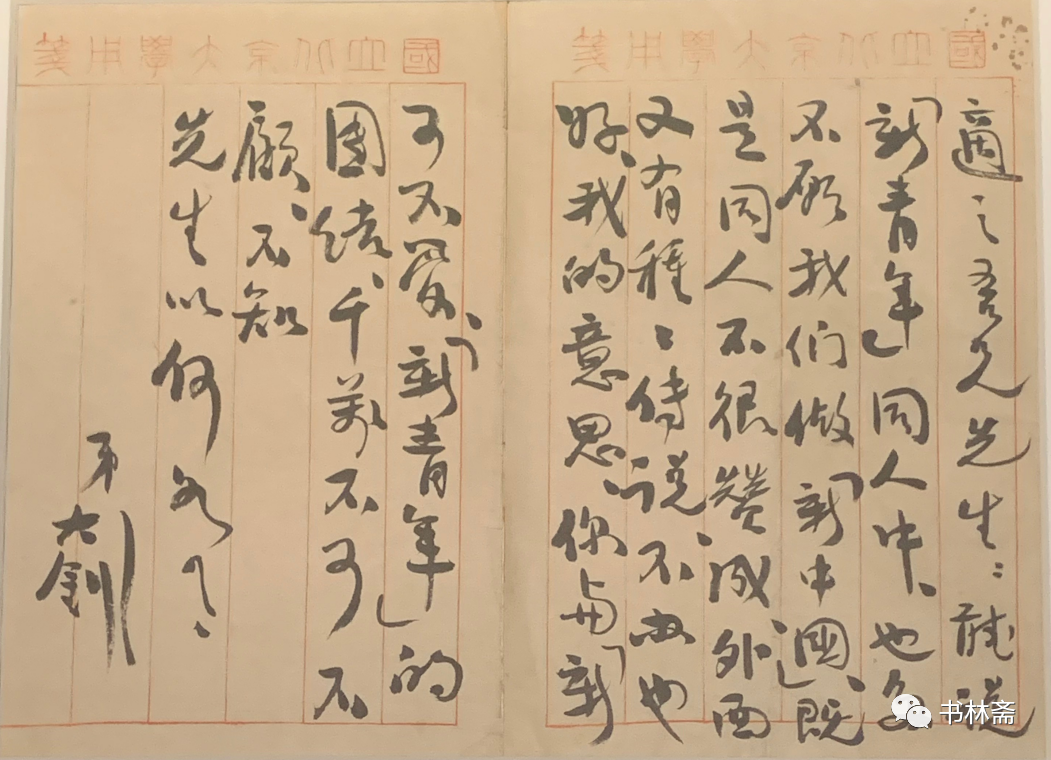 國立北京大學用箋
適之吾兄先生：聽説
「新青年」同人中、也多
不願我们做「新中國」、既
是同人不很贊成外面
又有種〻傳説、不办也
好、我的意思、你與「新
國立北京大學用箋
可不愛、「新青年」的
團結、千萬不可不
顧、不知
先生以何
弟
大釗
书林斋